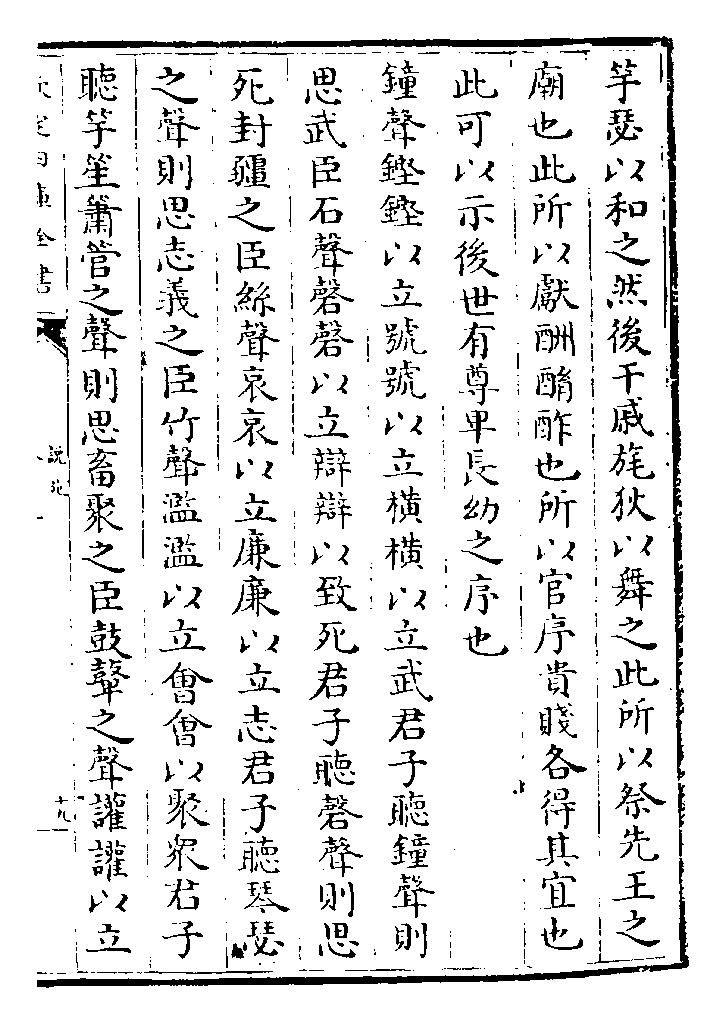 竽瑟以和之然後干戚旄狄以舞之此所以祭先王之
廟也此所以獻酬酳酢也所以官序貴賤各得其宜也
此可以示後世有尊卑長幼之序也
鐘聲鏗鏗以立號號以立橫橫以立武君子聽鐘聲則
思武臣石聲磬磬以立辯辯以致死君子聽磬聲則思
死封疆之臣絲聲哀哀以立廉廉以立志君子聽琴瑟
之聲則思志義之臣竹聲濫濫以立會會以聚眾君子
聽竽笙簫管之聲則思畜聚之臣鼓鼙之聲讙讙以立
欽定四庫全書
說苑
十九